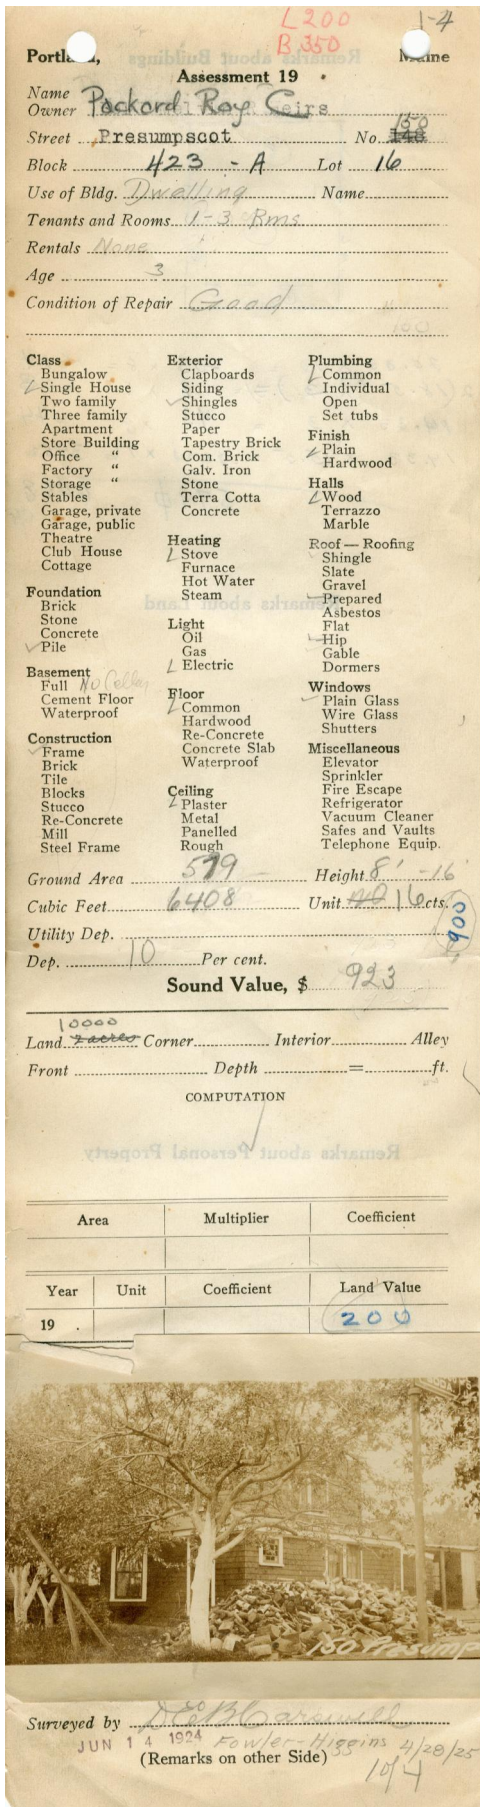 L 200
B 350
1-4
Portland, Maine
Assessment 19
Name
Owner Packard Roy C eirs
150
Street Presumpscot No. 148
Block 423 - A Lot 16
Use of Bldg. Dwelling Name
Tenants and Rooms 1-3 Rms
Rentals None
Age 3
Condition of Repair Good
100
Class
Bungalow
Single House
Two family
Three family
Apartment
Store Building
Office "
Factory "
Storage "
Stables
Garage, private
Garage, public
Theatre
Club House
Cottage
Foundation
Brick
Stone
Concrete
Pile
Basement
Full No Cellar
Cement Floor
Waterproof
Construction
Frame
Brick
Tile
Blocks
Stucco
Re-Concrete
Mill
Steel Frame
Exterior
Clapboards
Siding
Shingles
Stucco
Paper
Tapestry Brick
Com. Brick
Galv. Iron
Stone
Terra Cotta
Concrete
Heating
Stove
Furnace
Hot Water
Steam
Light
Oil
Gas
Electric
Floor
Common
Hardwood
Re-Concrete
Concrete Slab
Waterproof
Ceiling
Plaster
Metal
Panelled
Rough
Plumbing
Common
Individual
Open
Set tubs
Finish
Plain
Hardwood
Halls
Wood
Terrazzo
Marble
Roof — Roofing
Shingle
Slate
Gravel
Prepared
Asbestos
Flat
Hip
Gable
Dormers
Windows
Plain Glass
Wire Glass
Shutters
Miscellaneous
Elevator
Sprinkler
Fire Escape
Refrigerator
Vacuum Cleaner
Safes and Vaults
Telephone Equip.
Ground Area 579 Height 8' - 16'
Cubic Feet 6408 Unit 16 cts.
Utility Dep.
900
Dep. 10 Per cent.
Sound Value, $ 923
10000
Land 2 acres Corner Interior Alley
Front Depth = ft.
COMPUTATION
Remarks about Personal Property
Area Multiplier Coefficient
Year Unit Coefficient Land Value
19 . 200
150 Presump
Surveyed by Geo B Carswell
JUN 14 1924 Fowler-Higgins 4/28/25
(Remarks on other Side)
10/4